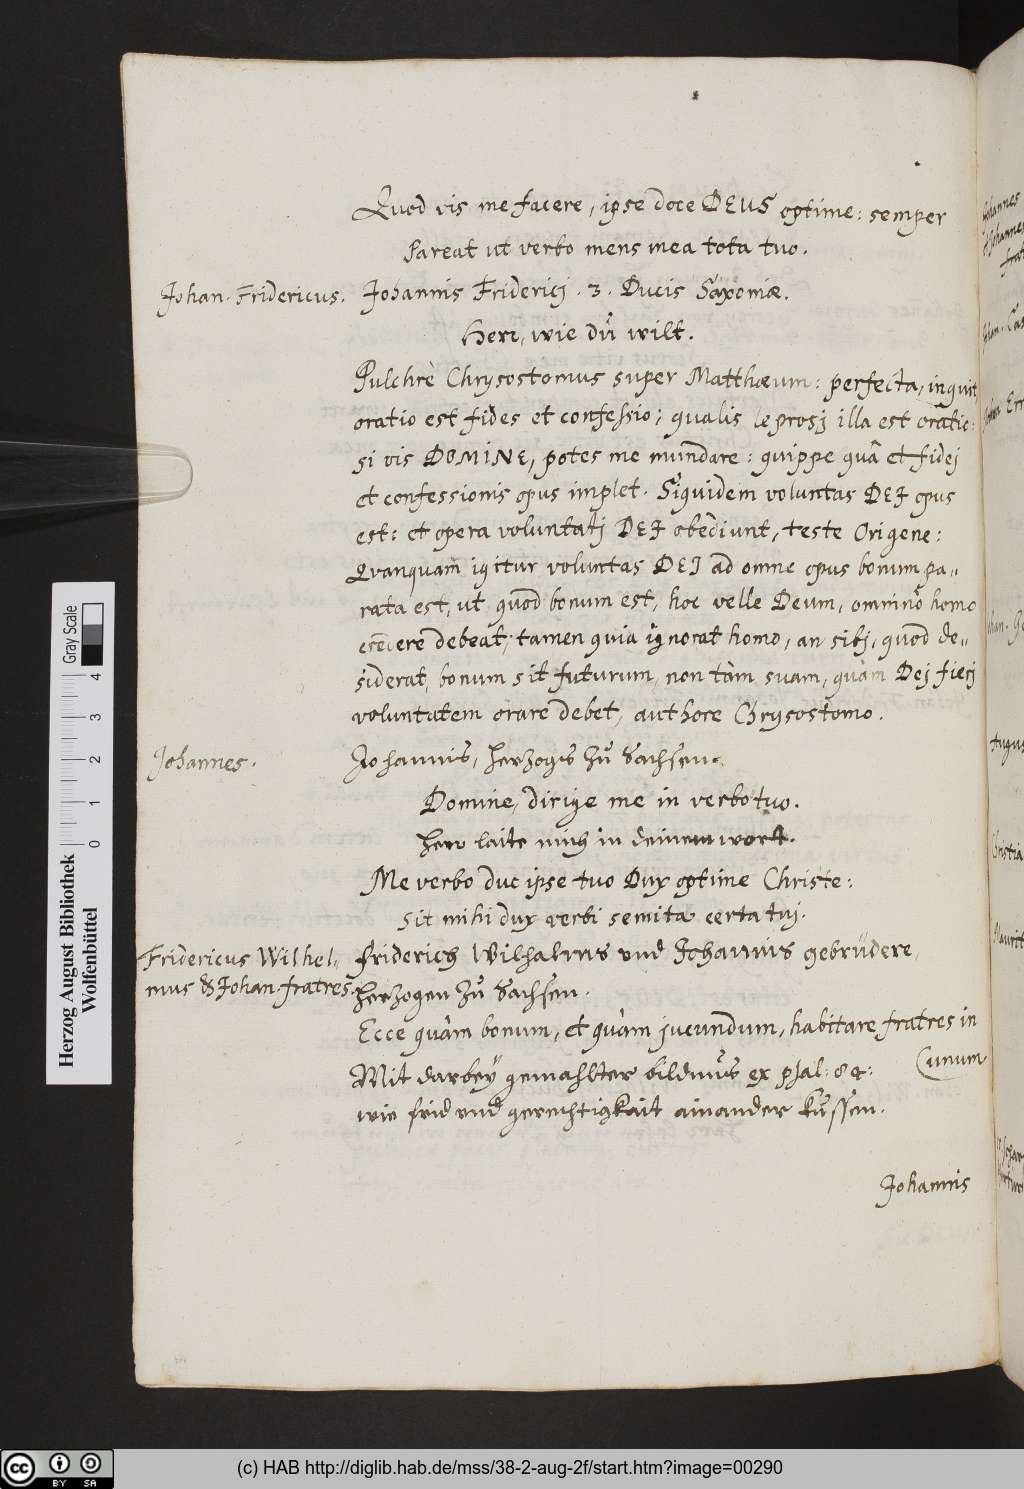 Quod vis me facere, ipse doce DEUS optime: semper
Pareat ut verbo mens mea tota tuo.
Johan. Fridericus. Johannis Fridericj. 3. Ducis Saxoniæ.
Herr, wie dŭ wilt.
Pulchrè Chrysostomus super Matthæum: perfecta, inquit
oratio est fides et confessio; qualis leprosj illa est oratio:
si vis DOMINE, potes me mundare: quippe quâ et fidej
et confessionis opus implet. Siquidem voluntas DEI opus
est: et opera voluntatj DEI obediunt, teste Origene:
Qvanquam igitur voluntas DEI ad omne opus bonum pa-
rata est, ut quod bonum est, hoc velle Deum, omninò homo
credere debeat; tamen quia ignorat homo, an sibj, quod de-
siderat, bonum sit futurum, non tàm suam, quàm Dej fierj
voluntatem orare debet, authore Chrysostomo.
Johannes. Johannis, Herzogs zŭ Sachsen.
Domine, dirige me in verbo tuo.
Herr laite mich in deinem wort.
Me verbo duc ipse tuo Dux optime Christe:
sit mihi dux verbi semita certa tuj.
Fridericus Wilhel- Friderich Wilhalms und Johannis gebrüdere,
mus & Johan. fratres. Herzogen zŭ Sachsen.
Ecce quàm bonum, et quàm jucundum, habitare fratres in
(unum
Mit darbeÿ gemahlter bildnŭs ex psal: 84:
wie frid und gerechtigkait ainander kŭssen.
Johannis
Johannes
Augus
Christia
Maurit
Herzog August Bibliothek
Wolfenbüttel
0 1 2 3 4
Gray Scale
cc BY SA
(c) HAB http://diglib.hab.de/mss/38-2-aug-2f/start.htm?image=00290